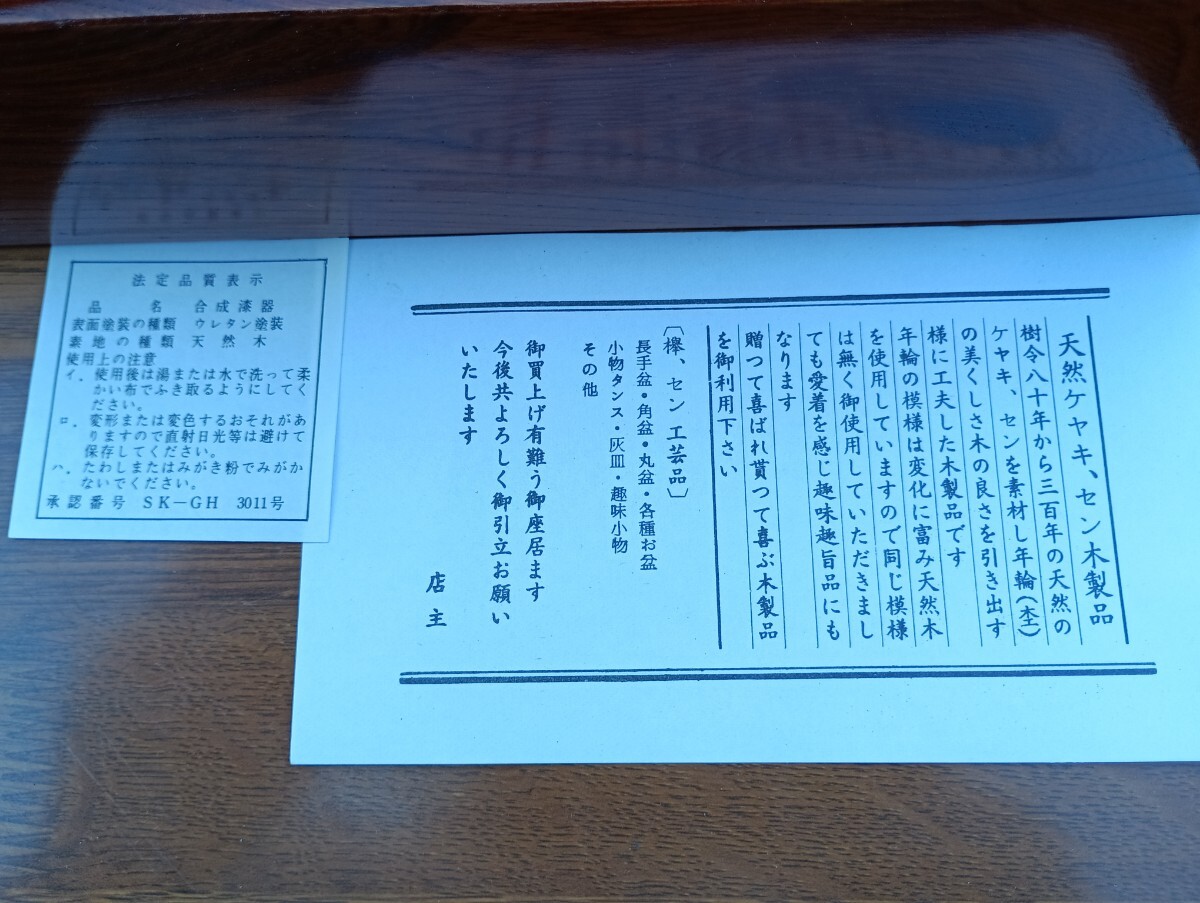 法定品質表示
品名 合成漆器
表面塗装の種類 ウレタン塗装
素地の種類 天然木
使用上の注意
イ．使用後は湯または水で洗って柔
かい布でふき取るようにしてく
ださい。
ロ．変形または変色するおそれがあ
りますので直射日光等は避けて
保存してください。
ハ．たわしまたはみがき粉でみがか
ないでください。
承認番号 SK－GH 3011号
天然ケヤキ、セン木製品
樹令八十年から三百年の天然の
ケヤキ、センを素材し年輪（杢）
の美くしさ木の良さを引き出す
様に工夫した木製品です
年輪の模様は変化に富み天然木
を使用していますので同じ模様
は無く御使用していただきまし
ても愛着を感じ趣味趣旨品にも
なります
贈つて喜ばれ貰つて喜ぶ木製品
を御利用下さい
〔欅、セン工芸品〕
長手盆・角盆・丸盆・各種お盆
小物タンス・灰皿・趣味小物
その他
御買上げ有難う御座居ます
今後共よろしく御引立お願い
いたします
店主